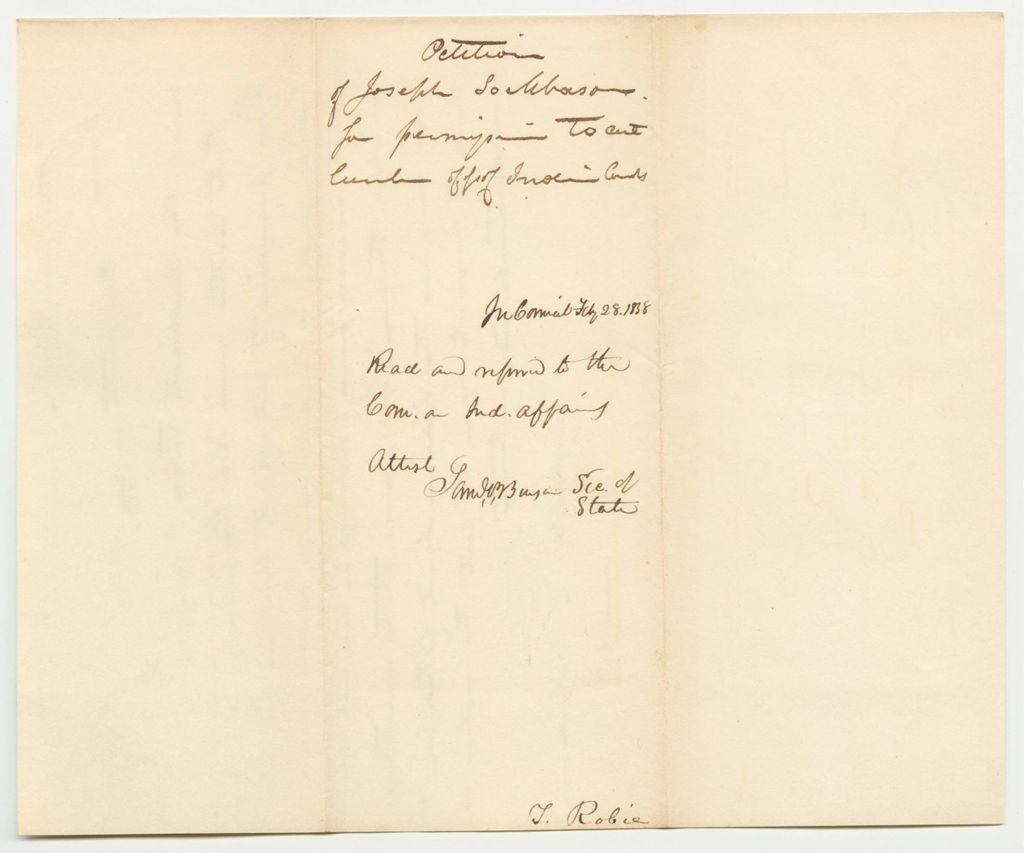 Petition
of Joseph Sockbason.
for permission to cut
lumber off of Indian Lands
In Council Feby 28. 1838
Read and referred to the
Com. on Ind. affairs
Attest
Saml P. Benson Sec. of
State
T. Robie